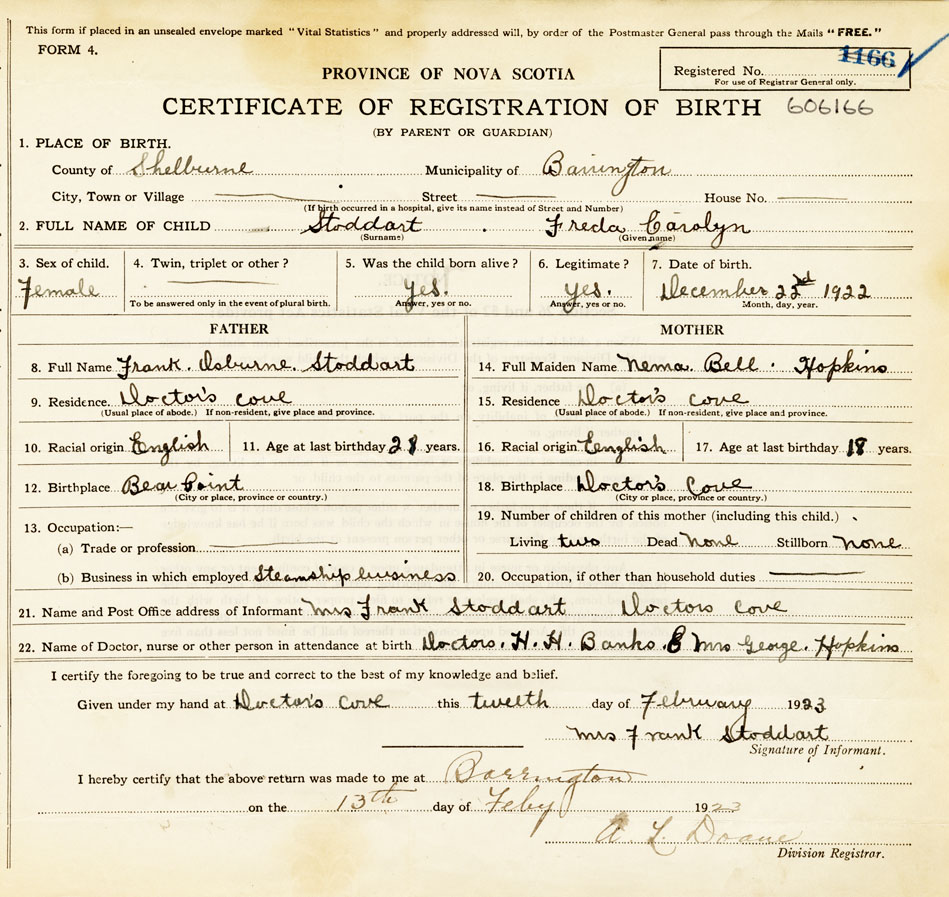 This form if placed in an unsealed envelope marked "Vital Statistics" and properly addressed will, by order of the Postmaster General pass through the Mails "FREE."
FORM 4.
1166
Registered No.
For use of Registrar General only.
PROVINCE OF NOVA SCOTIA
CERTIFICATE OF REGISTRATION OF BIRTH 606166
(BY PARENT OR GUARDIAN)
1. PLACE OF BIRTH.
County of Shelburne Municipality of Barrington
City, Town or Village Street House No.
(If birth occurred in a hospital, give its name instead of Street and Number)
2. FULL NAME OF CHILD Stoddart Freda Carolyn
(Surname) (Given name)
3. Sex of child. 4. Twin, triplet or other? 5. Was the child born alive? 6. Legitimate? 7. Date of birth.
Female yes. yes. December 22nd 1922
To be answered only in the event of plural birth. Answer, yes or no. Answer, yes or no. Month, day, year.
FATHER MOTHER
8. Full Name Frank. Osburne. Stoddart 14. Full Maiden Name Nema. Bell. Hopkins
9. Residence. Doctor's Cove 15. Residence Doctor's Cove
(Usual place of abode.) If non-resident, give place and province. (Usual place of abode.) If non-resident, give place and province.
10. Racial origin English 11. Age at last birthday years. 16. Racial origin English 17. Age at last birthday 18 years.
12. Birthplace Bear Point 18. Birthplace Doctor's Cove
(City or place, province or country.) (City or place, province or country.)
13. Occupation:— 19. Number of children of this mother (including this child.)
(a) Trade or profession Living two Dead None Stillborn None
(b) Business in which employed Steamship business 20. Occupation, if other than household duties
21. Name and Post Office address of Informant Mrs Frank Stoddart Doctors Cove
22. Name of Doctor, nurse or other person in attendance at birth Doctors. H. H. Banks. & Mrs George. Hopkins
I certify the foregoing to be true and correct to the best of my knowledge and belief.
Given under my hand at Doctor's Cove this twelth day of February 1923
Mrs Frank Stoddart
Signature of Informant.
I hereby certify that the above return was made to me at Barrington
on the 13th day of Feby 1923
A L Doane
Division Registrar.